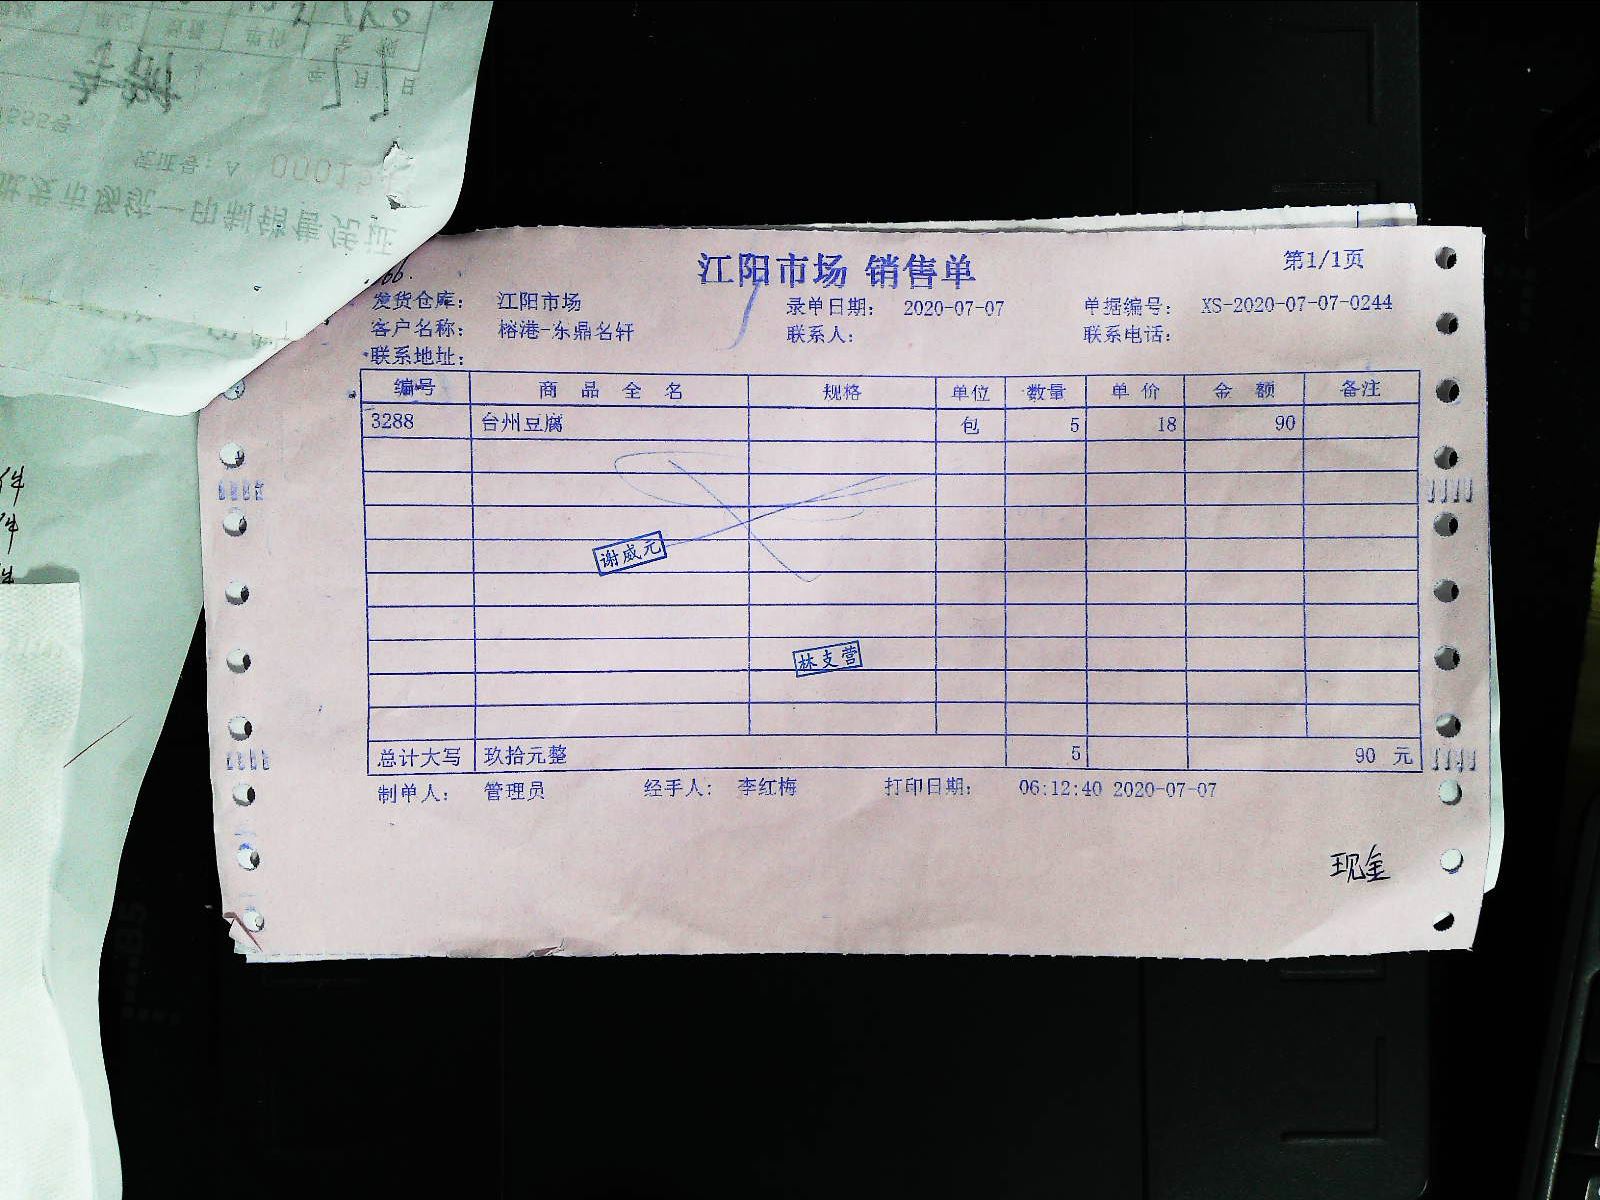 江阳市场 销售单
第1/1页
发货仓库： 江阳市场 录单日期： 2020-07-07 单据编号： XS-2020-07-07-0244
客户名称： 榕港-东鼎名轩 联系人： 联系电话：
联系地址：
编号 商品全名 规格 单位 数量 单价 金额 备注
3288 台州豆腐 包 5 18 90
谢威元
林支营
总计大写 玖拾元整 5 90 元
制单人： 管理员 经手人： 李红梅 打印日期： 06:12:40 2020-07-07
现金
批发市场统一印制销售凭证
年 月 日
件
件
件